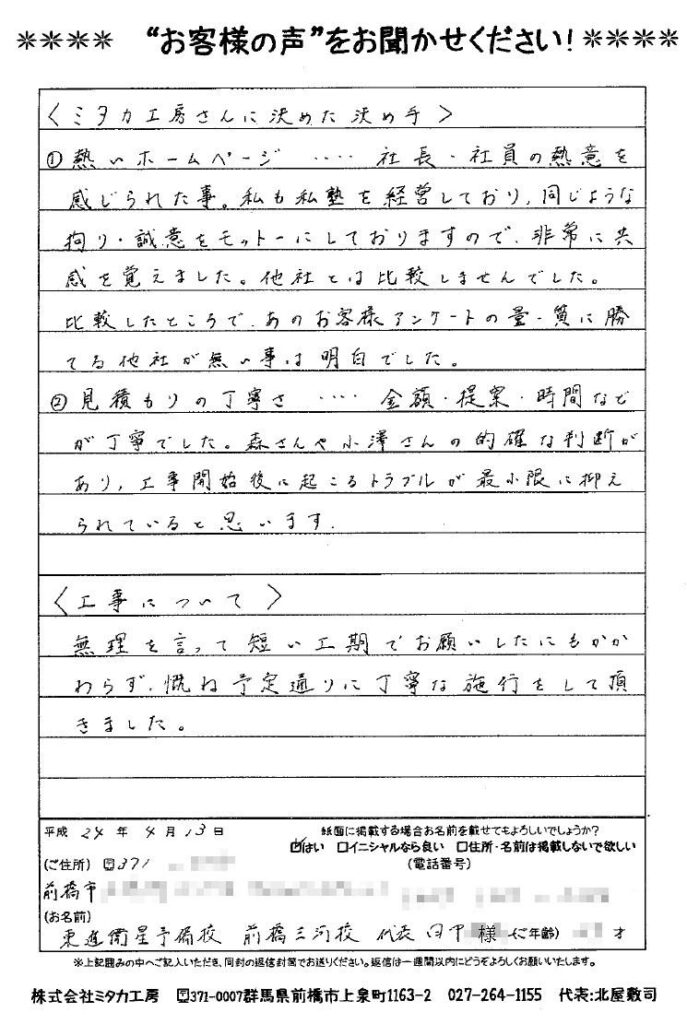 **** “お客様の声”をお聞かせください！ ****
〈ミタカ工房さんに決めた決め手〉
①熱いホームページ ‥‥ 社長・社員の熱意を
感じられた事。私も私塾を経営しており、同じような
拘り・誠意をモットーにしておりますので、非常に共
感を覚えました。他社とは比較しませんでした。
比較したところで、あのお客様アンケートの量・質に勝
てる他社が無い事は明白でした。
②見積もりの丁寧さ ‥‥ 金額・提案・時間など
が丁寧でした。森さんや小澤さんの的確な判断が
あり、工事開始後に起こるトラブルが最小限に抑え
られていると思います.
〈工事について〉
無理を言って短い工期でお願いしたにもかか
わらず、慨ね予定通りに丁寧な施行をして頂
きました。
平成 24 年 4 月 13 日 紙面に掲載する場合お名前を載せてもよろしいでしょうか？
☑はい □イニシャルなら良い □住所・名前は掲載しないで欲しい
(ご住所) 〒371 (電話番号)
前橋市
(お名前)
東進衛星予備校 前橋三河校 代表 田中 様 (ご年齢) 才
※上記囲みの中へご記入いただき、同封の返信封筒でお送りください。返信は一週間以内にどうぞよろしくお願いいたします。
株式会社ミタカ工房 〒371-0007群馬県前橋市上泉町1163-2 027-264-1155 代表:北屋敷司